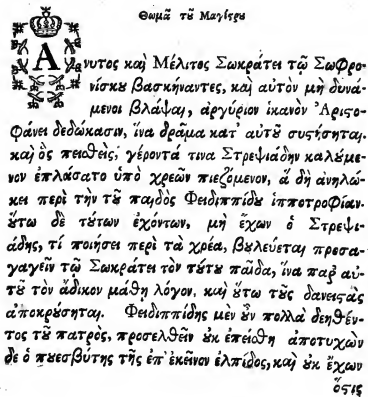 Θωμᾶ τοῦ Μαγίστρου
Ἄνυτος καὶ Μέλιτος Σωκράτει τῷ Σωφρο-
νίσκου βασκήναντες, καὶ αὐτὸν μὴ δυνά-
μενοι βλάψαι, ἀργύριον ἱκανὸν Ἀριστο-
φάνει δεδώκασιν, ἵνα δρᾶμα κατ᾽ αὐτοῦ συστήσηται.
καὶ ὃς πεισθεὶς, γέροντά τινα Στρεψιάδην καλούμε-
νον ἐπλάσατο ὑπὸ χρεῶν πιεζόμενον, ἃ δὴ ἀνηλώ-
κει περὶ τὴν τοῦ παιδὸς Φειδιππίδου ἱπποτροφίαν.
οὕτω δὲ τούτων ἐχόντων, μὴ ἔχων ὁ Στρεψι-
άδης, τί ποιήσει περὶ τὰ χρέα, βουλεύεται προσα-
γαγεῖν τῷ Σωκράτει τὸν τούτου παῖδα, ἵνα παρ᾽ αὐ-
τοῦ τὸν ἄδικον μάθῃ λόγον, καὶ οὕτω τοὺς δανειστὰς
ἀποκρύσηται. Φειδιππίδης μὲν οὖν πολλὰ δεηθέν-
τος τοῦ πατρὸς, προσελθεῖν οὐκ ἐπείσθη ἀποτυχὼν
δὲ ὁ πρεσβύτης τῆς ἐπ᾽ ἐκεῖνον ἐλπίδος, καὶ οὐκ ἔχων
ὅστις